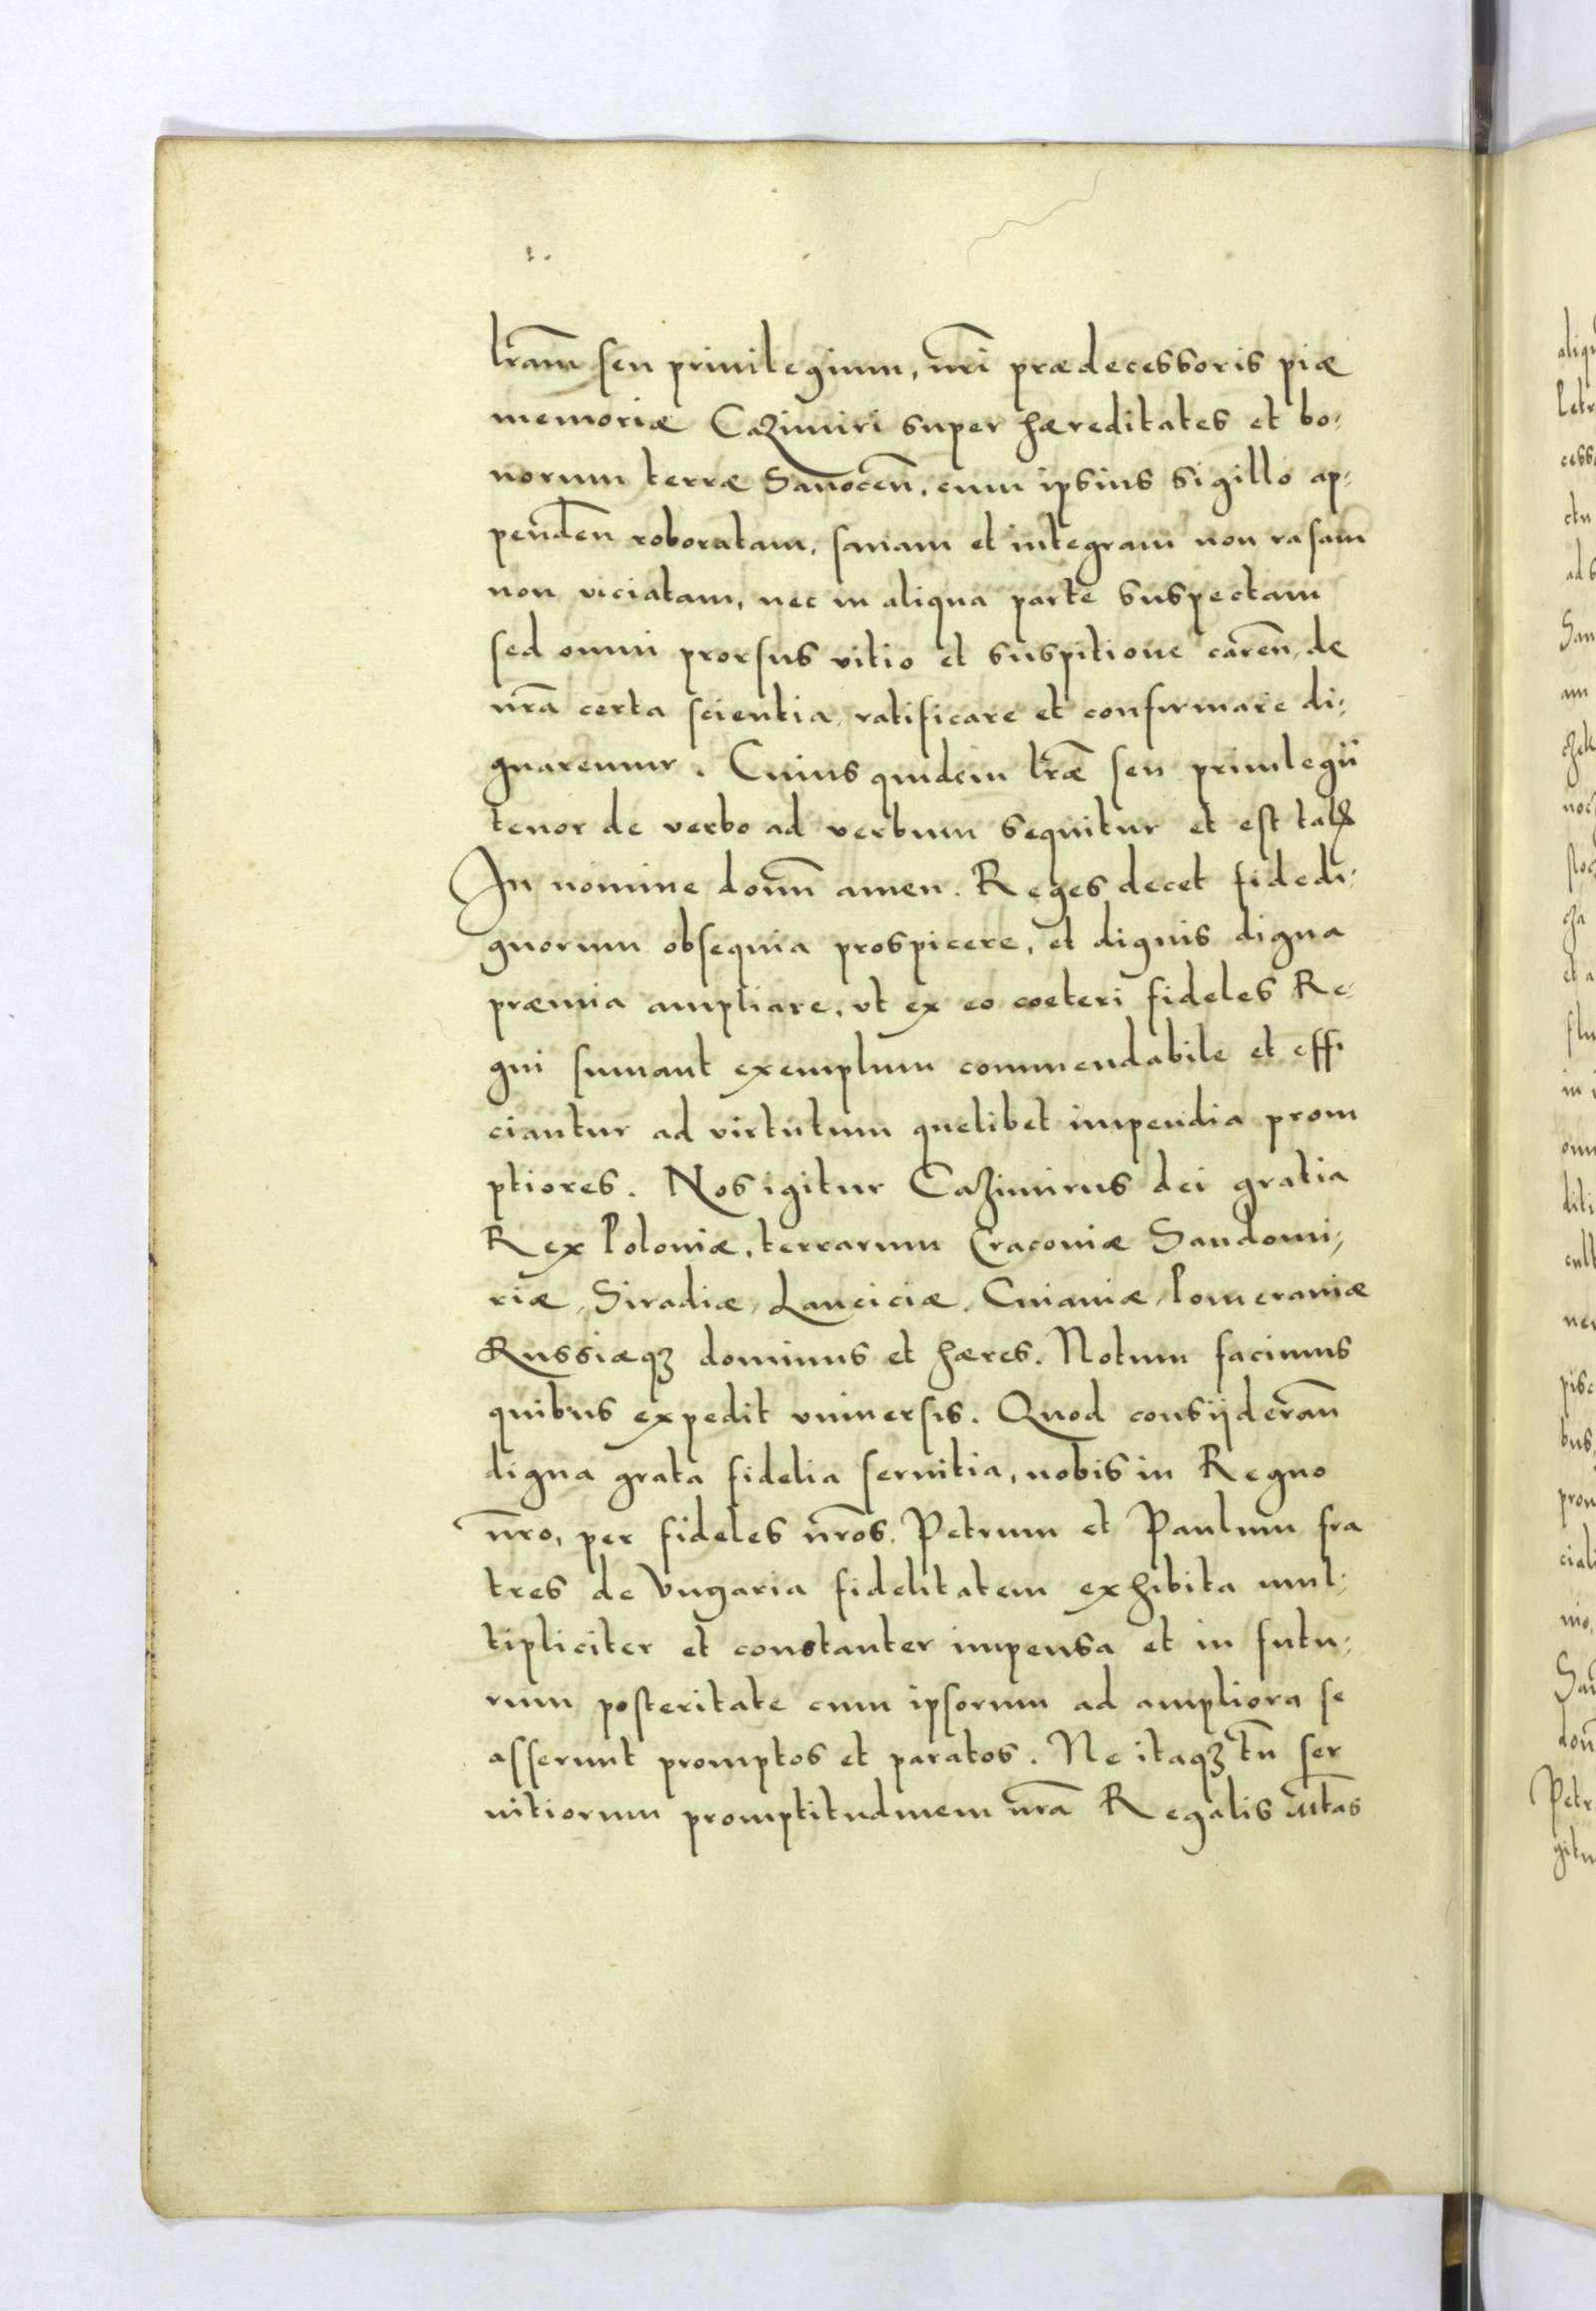 lr̃am seu priuilegium, nr̃i prædecessoris piæ
memoriæ Cazimiri super hæreditates et bo:
norum terræ Sanocen̄, cum ipsius sigillo ap:
penden̄ roboratam, sanam et integram non rasam
non viciatam, nec in aliqua parte suspectam
sed omni prorsus vitio et suspitione caren̄, de
nr̃a certa scientia, ratificare et confirmare di:
gnaremur. Cuius quidem lr̃æ seu priuilegii
tenor de verbo ad verbum sequitur et est talꝭ
In nomine domn̄ amen. Reges decet fidedi:
gnorum obsequia prospicere, et dignis digna
præmia ampliare, vt ex eo coeteri fideles Re:
gni sumant exemplum commendabile et effi
ciantur ad virtutum quelibet impendia prom
ptiores. Nos igitur Cazimirus dei gratia
Rex Poloniæ, terrarum Cracouiæ Sandomi:
riæ, Siradiæ, Lanciciæ, Cuiauiæ, Pomeraniæ
Russiæqꝫ dominus et hæres. Notum facimus
quibus expedit vniuersis. Quod consijderan̄
digna grata fidelia seruitia, nobis in Regno
nr̃o, per fideles nr̃os. Petrum et Paulum fra
tres de Vngaria fidelitatem exhibita mul:
tipliciter et constanter impensa et in futu:
rum posteritate cum ipsorum ad ampliora se
asserunt promptos et paratos. Ne itaqꝫ tn̄ ser
uitiorum promptitudinem nr̃a Regalis Mtas